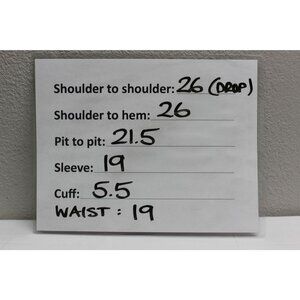 Shoulder to shoulder: 26 (DROP)
Shoulder to hem: 26
Pit to pit: 21.5
Sleeve: 19
Cuff: 5.5
WAIST : 19